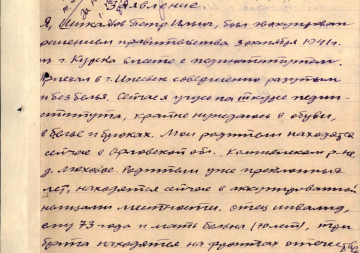 Заявление
Я, Шитков Петр Ильич, был эвакуирован
решением правительства 3 октября 1941 г.
из г. Курска вместе с пединститутом.
Приехал в г. совершенно разутым
и без белья. Сейчас я учусь на курсе педин-
ститута, крайне нуждаюсь в обуви,
в белье и брюках. Мои родители находятся
сейчас в Орловской обл. р-не,
д. Моховое. Родители уже преклонных
лет, находятся сейчас в оккупированной
немцами местности. Отец инвалид,
ему 73 года и мать больна (70 лет), три
брата находятся на фронтах отечеств